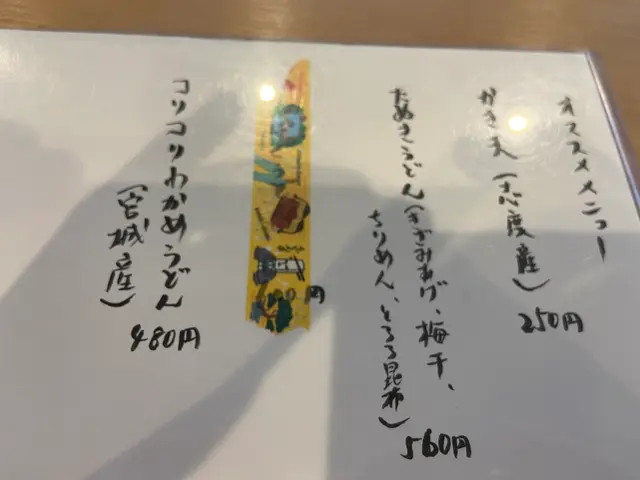 オススメメニュー
かき天(志度産)
250円
たぬきうどん(きざみあげ、梅干、
ちりめん、とろろ昆布)
560円
円
コリコリわかめうどん
(宮城産)
480円